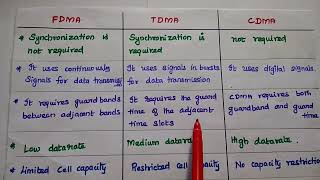 FDMA TDMA CDMA
* Synchronization is not required
Synchronization is required
not required
* It uses continuously Signals for data transmission
It uses signals in bursts for data transmission
It uses digital signals.
* It requires guard bands between adjacent bands
It requires the guard time of the adjacent time slots
CDMA requires both guardband and guard time
* Low datarate
Medium datarate
High datarate.
* Limited Cell capacity
Restricted cell capacity
No capacity restriction